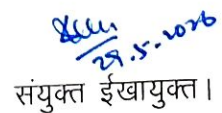 29.5.2026
संयुक्त ईखायुक्त।